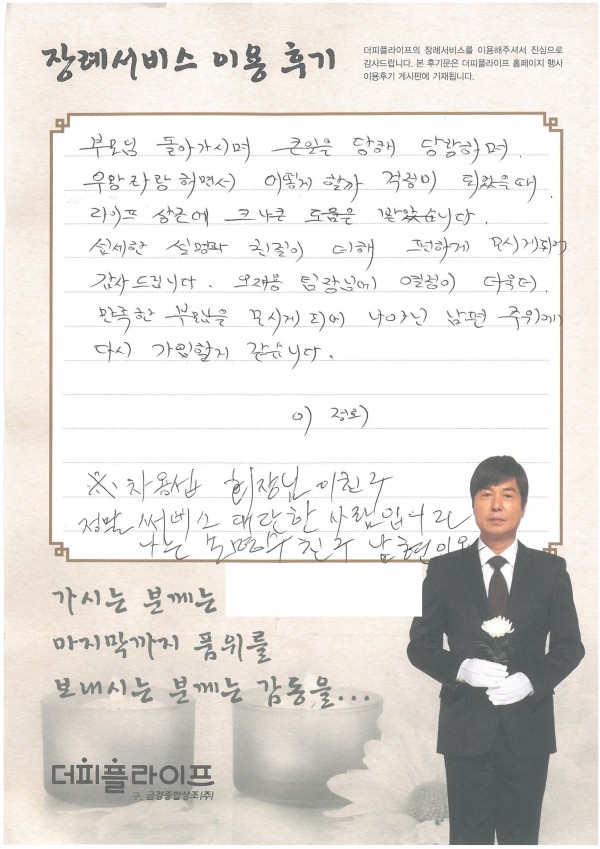 장례서비스 이용 후기
더피플라이프의 장례서비스를 이용해주셔서 진심으로
감사드립니다. 본 후기문은 더피플라이프 홈페이지 행사
이용후기 게시판에 기재됩니다.
부모님 돌아가시며 큰일을 당해 당황하며.
우왕좌왕 하면서 어떻게 할까 걱정이 되었을때.
라이프 상조에 크나큰 도움은 받았습니다.
섬세한 설명과 친절이 더해 편하게 모시게되어
감사드립니다. 오재용 팀장님에 열정이 더욱더.
만족한 부모님을 모시게 되어 나아닌 남편 주위에
다시 가입할거 같습니다.
이 정
※ 차용섭 회장님 이친구
정말 써비스 대단한 사람입니다
나는 친구 남편이
가시는 분께는
마지막까지 품위를
보내시는 분께는 감동을...
더피플라이프
구. 금강종합상조(주)